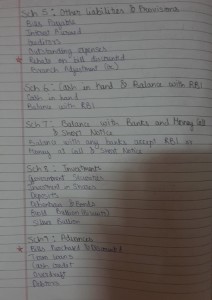 Sch 5: Other Liabilities & Provisions
Bills Payable
Interest Accrued
Creditors
Outstanding expenses
* Rebate on bill discounted
Branch Adjustment (Cr.)
Sch 6: Cash in hand & Balance with RBI
Cash in hand
Balance with RBI
Sch 7: Balance with Banks and Money Call & Short Notice
Balance with any banks except RBI
Money at Call & Short Notice
Sch 8: Investments
Government Securities
Investment in Shares
Deposits
Debentures & Bonds
Gold
Silver Bullion
Sch 9: Advances
* Bills Purchased & Discounted
Loan
Cash credit
Overdraft
Debtors